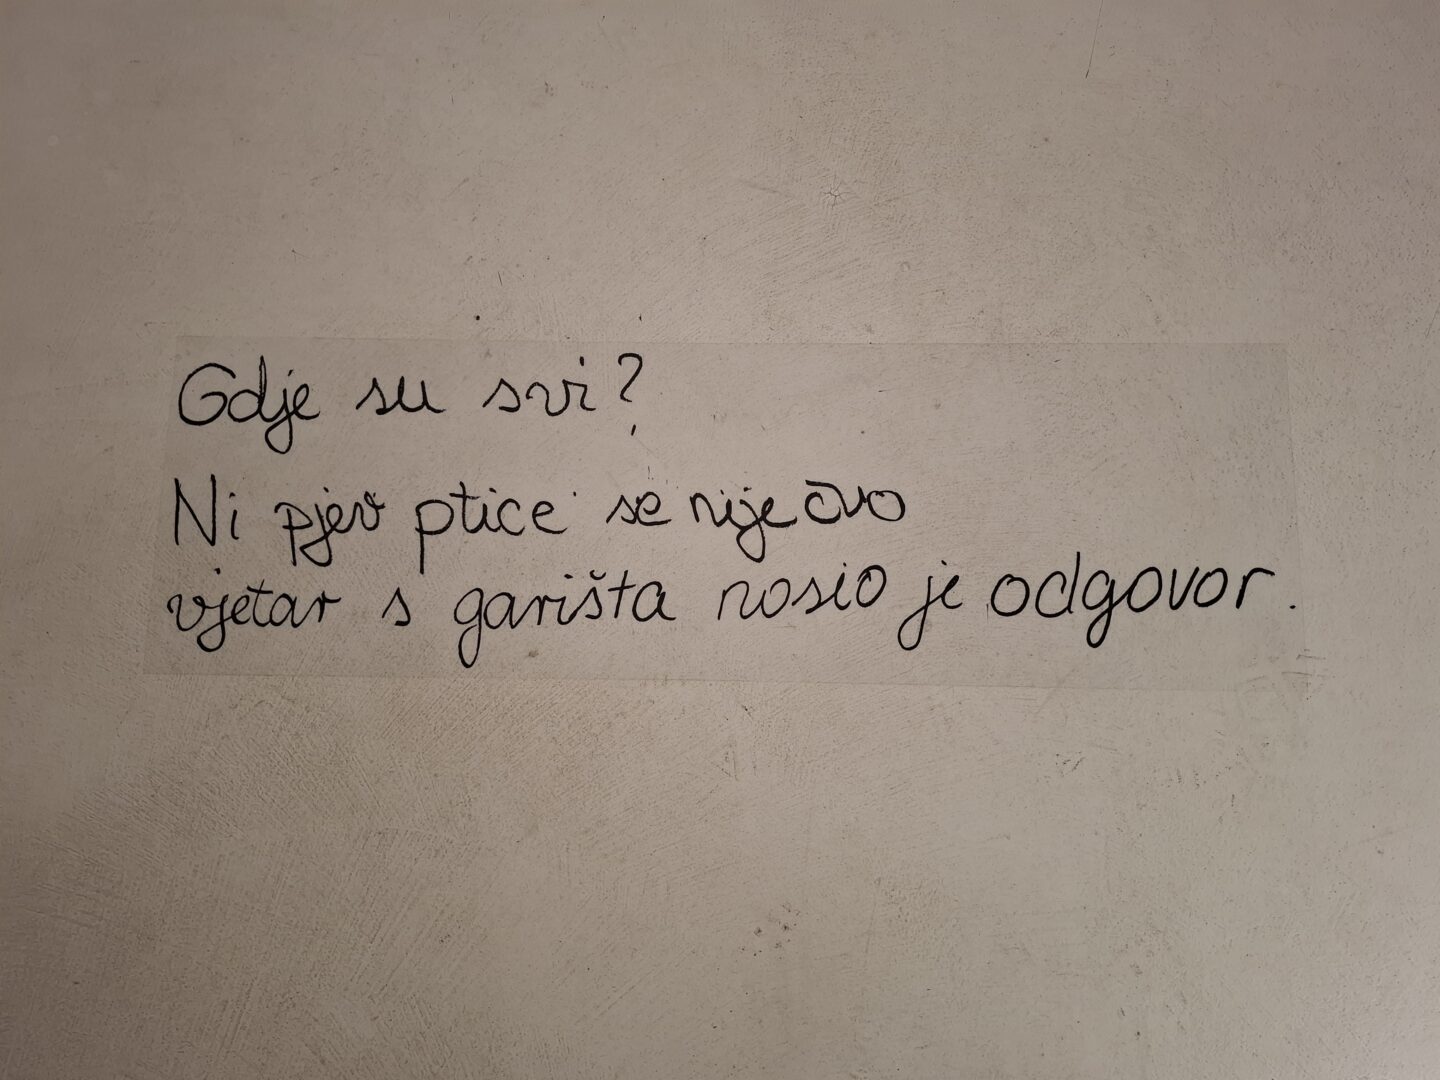 Gdje su svi?
Ni pjev ptice se nije čuo
vjetar s garišta nosio je odgovor.